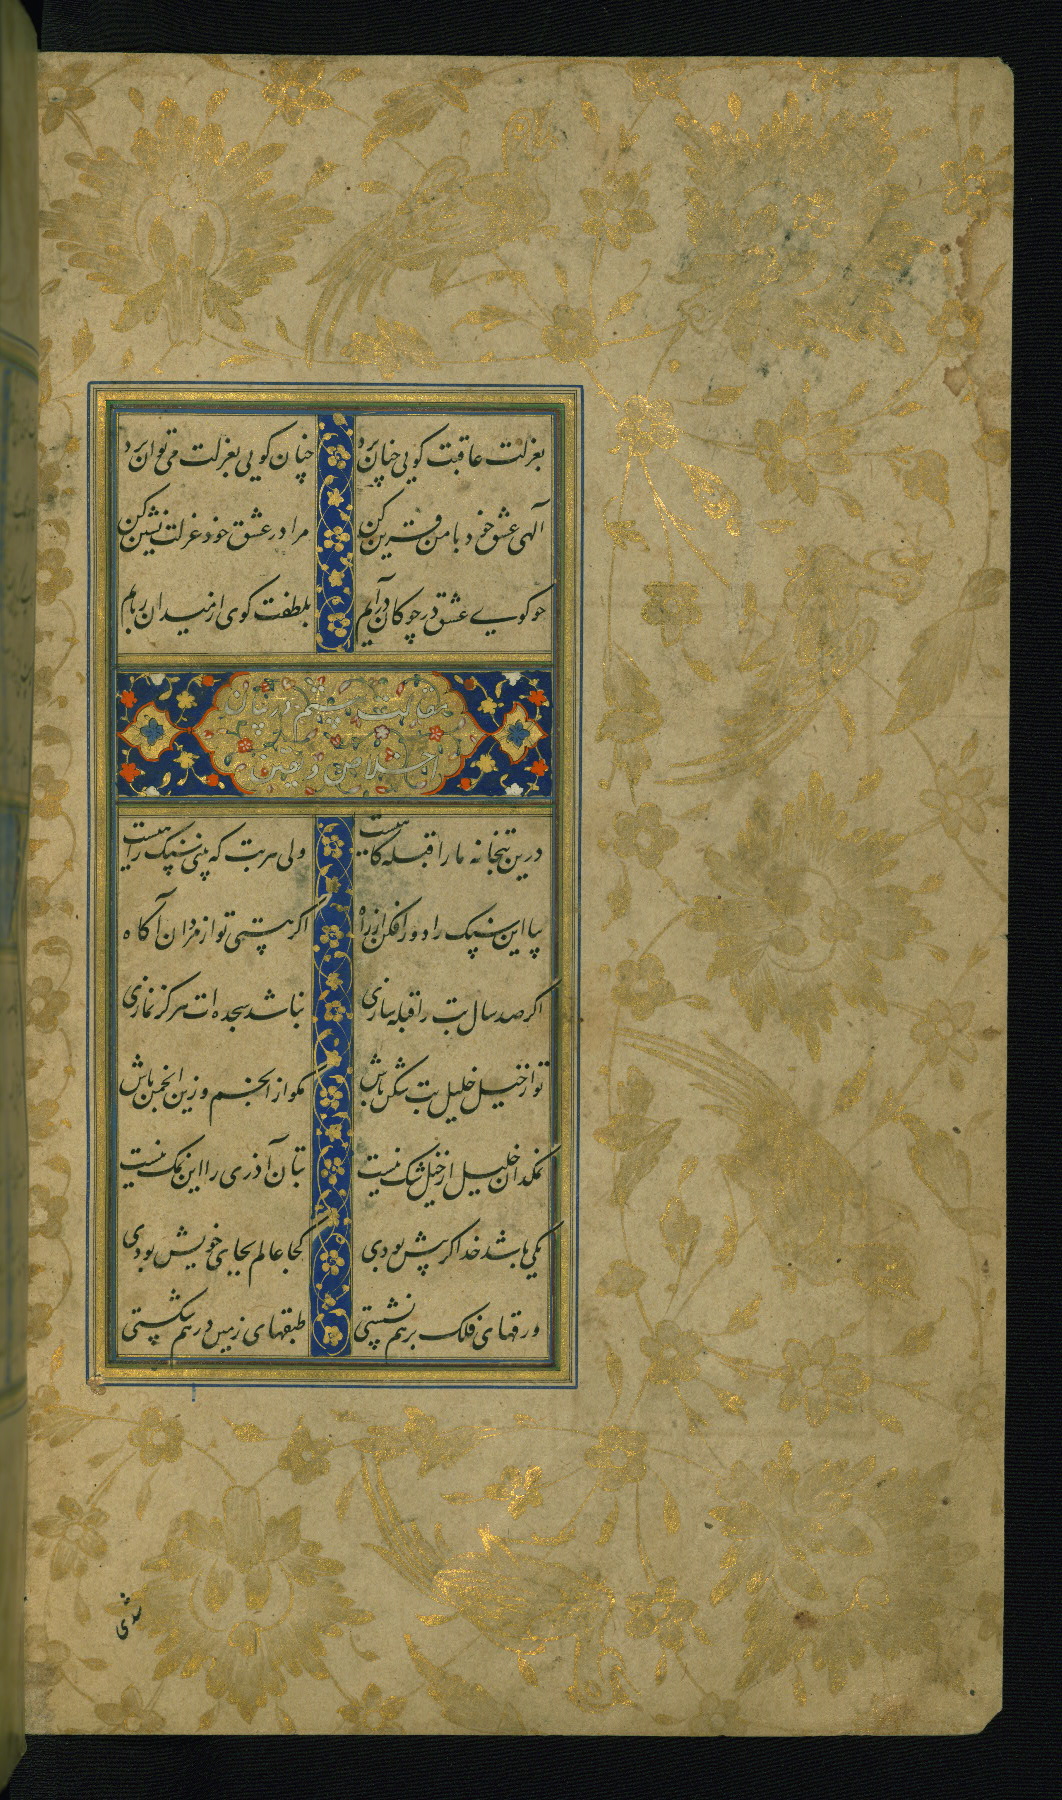 بعزلت عاقبت کویی چنان برد چنان کویی بعزلت می توان برد
آلهی عشق خود با من قرین کن مرا در عشق خود عزلت نشین کن
چو کویی عشق در چوکان در آیم بلطفت کوی از میدان ربایم
مقالت هشتم در بیان
اخلاص و یقین
درین بتخانه ما را قبله کاهیست ولی هر بت که بینی سنک راهیست
بیا این سنک را دور افکن از راه اکر هستی تو از مردان آکاه
اکر صد سال بت را قبله سازی نباشد سجده ات هرکز نمازی
تو از خیل خلیل بت شکن باش مکو از انجم و زین انجمن باش
نمکدان خلیل از خیل شک نیست بتان آذری را این نمک نیست
یکی باشد خدا کر بیش بودی کجا عالم بجای خویش بودی
ورقهای فلک برهم نشستی طبقهای زمین درهم شکستی
شدی